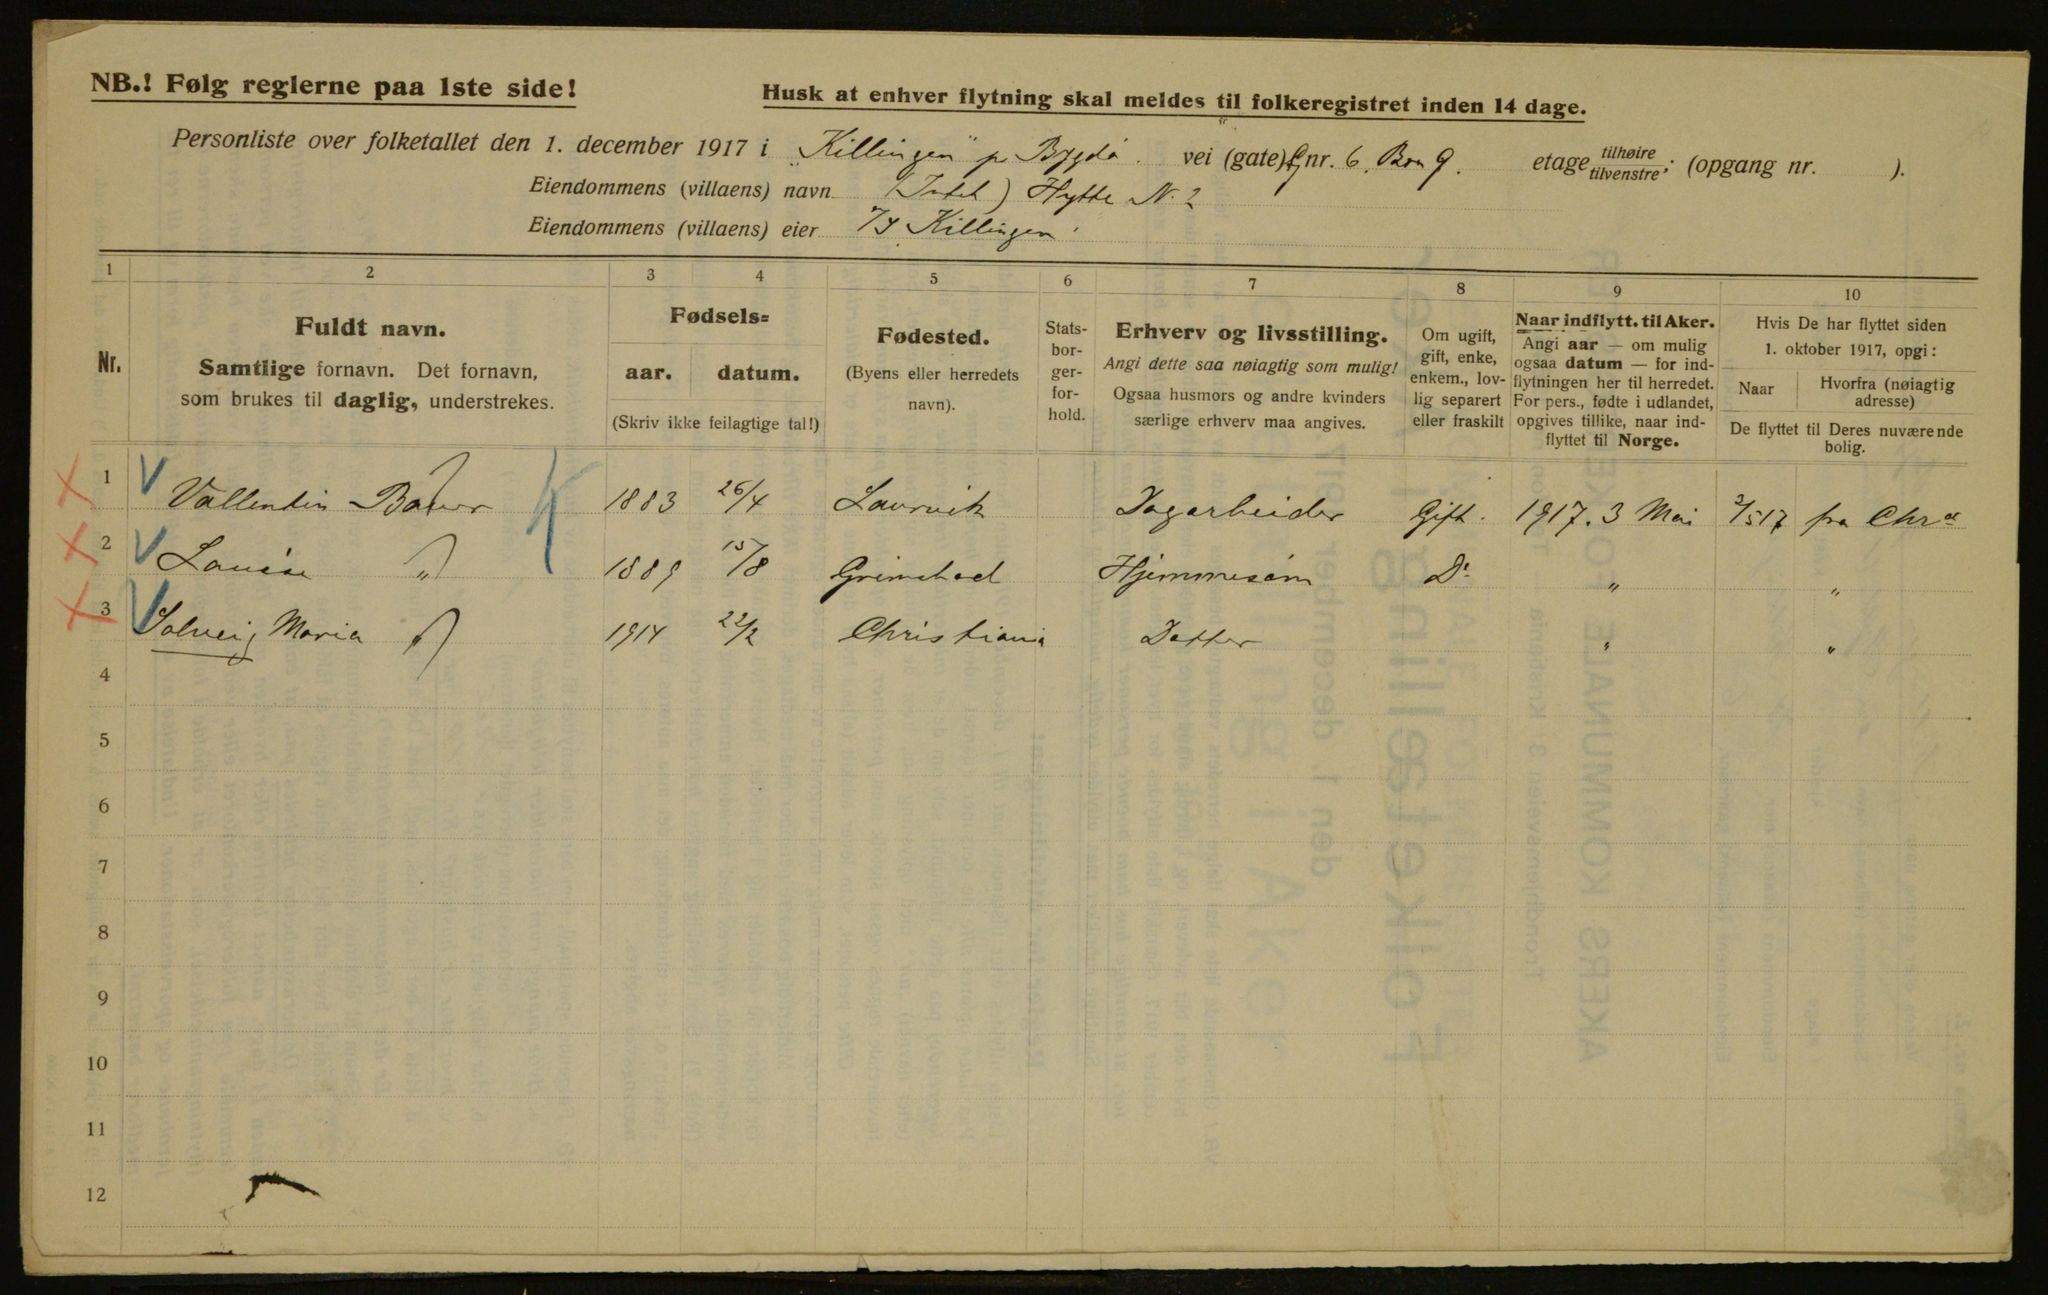 NB.! Følg reglerne paa 1ste side!
Husk at enhver flytning skal meldes til folkeregistret inden 14 dage.
Personliste over folketallet den 1. december 1917 i „Killingen" pr Bygdö. vei (gate) Gnr. 6, Brn 9. etage tilhøire tilvenstre; (opgang nr. ).
Eiendommens (villaens) navn (Intet) Hytte N. 2
Eiendommens (villaens) eier Killingen
1 2 3 4 5 6 7 8 9 10
Nr.
Fuldt navn.
Samtlige fornavn. Det fornavn,
som brukes til daglig, understrekes.
Fødsels=
aar. datum.
(Skriv ikke feilagtige tal!)
Fødested.
(Byens eller herredets
navn).
Stats-
bor-
ger-
for-
hold.
Erhverv og livsstilling.
Angi dette saa nøiagtig som mulig!
Ogsaa husmors og andre kvinders
særlige erhverv maa angives.
Om ugift,
gift, enke,
enkem., lov-
lig separert
eller fraskilt
Naar indflytt. til Aker.
Angi aar — om mulig
ogsaa datum — for ind-
flytningen her til herredet.
For pers., fødte i udlandet,
opgives tillike, naar ind-
flyttet til Norge.
Hvis De har flyttet siden
1. oktober 1917, opgi:
Naar
Hvorfra (nøiagtig
adresse)
De flyttet til Deres nuværende
bolig.
1 Vallentin Bauer 1883 26/4 Laurvik Dagarbeider Gift. 1917. 3 Mai 3/5 17 fra Chr a
2 Lauise " 1889 15/8 Grimstad Hjemmesøm Do " "
3 Solveig Maria " 1914 22/2 Christiania Datter " "
4
5
6
7
8
9
10
11
12